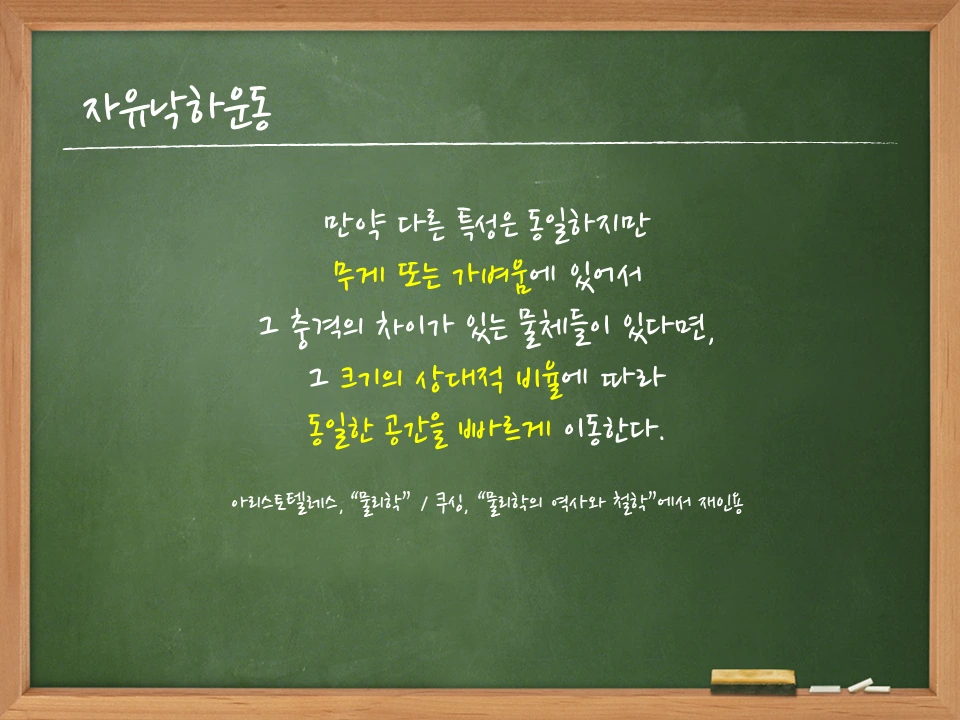 자유낙하운동
만약 다른 특성은 동일하지만
무게 또는 가벼움에 있어서
그 충격의 차이가 있는 물체들이 있다면,
그 크기의 상대적 비율에 따라
동일한 공간을 빠르게 이동한다.
아리스토텔레스, “물리학” / 쿠싱, “물리학의 역사와 철학”에서 재인용